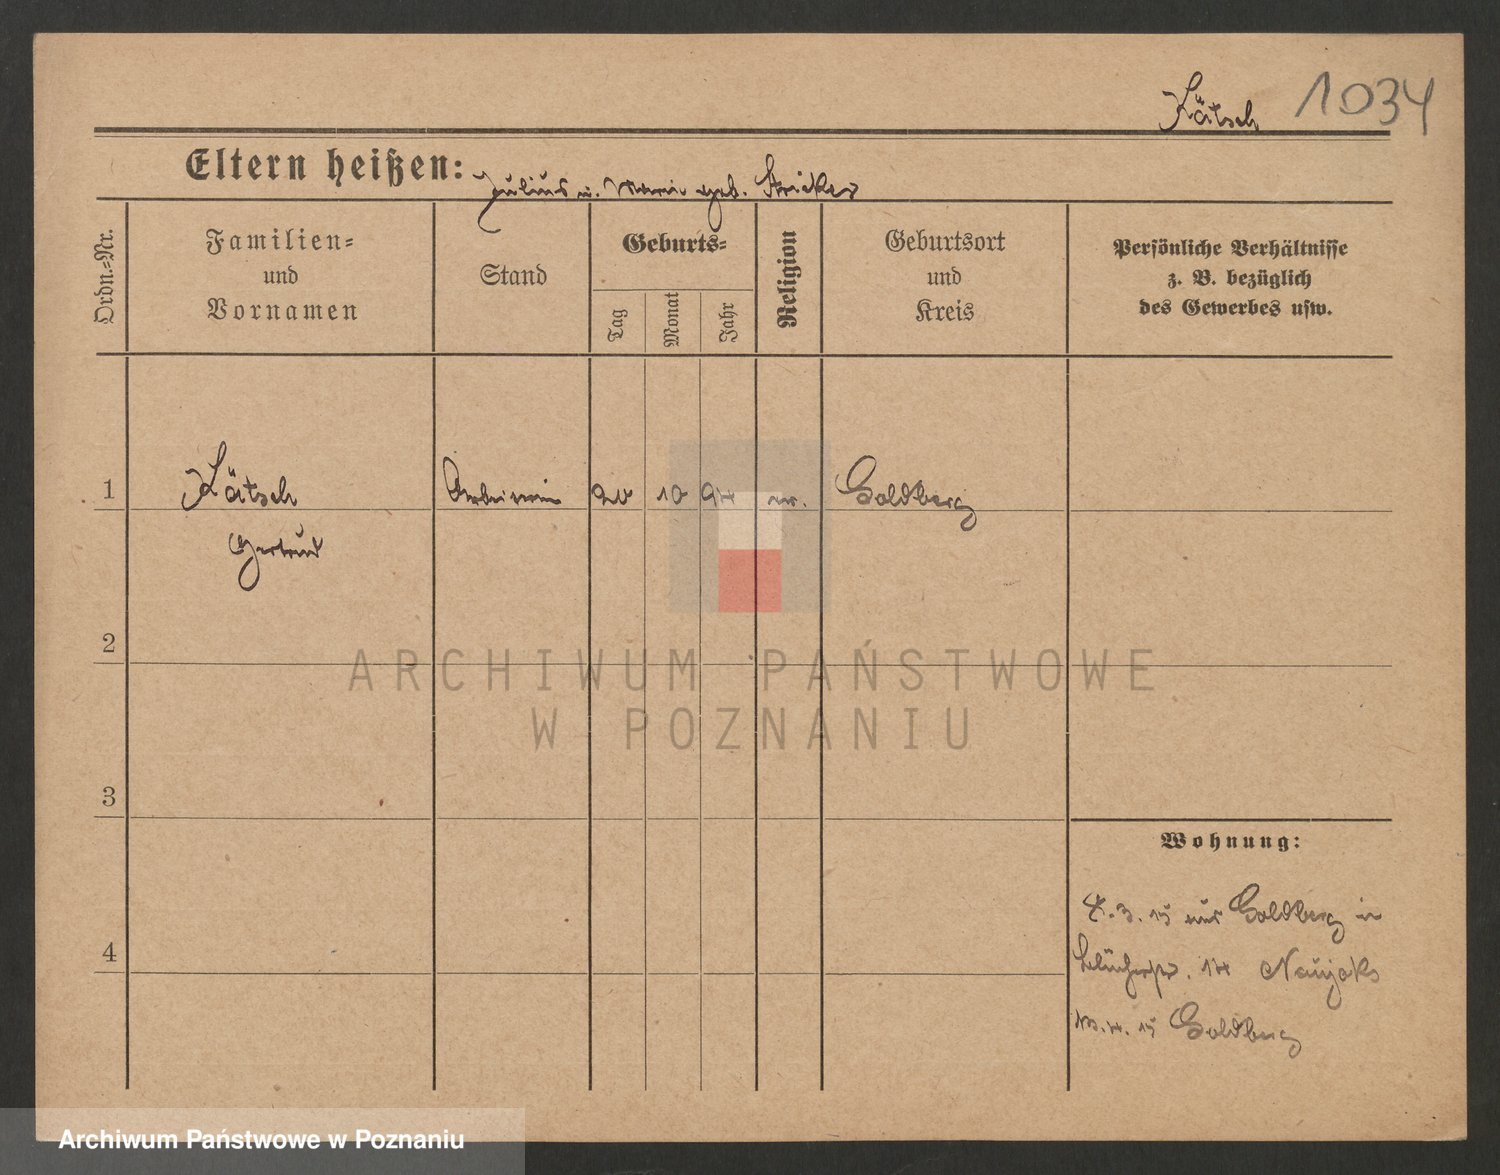 Kätsch 1034
Eltern heißen: Julius u. Marie geb. Stricker
Ordn.-Nr.
Familien-
und
Vornamen
Stand
Geburts-
Tag
Monat
Jahr
Religion
Geburtsort
und
Kreis
Persönliche Verhältnisse
z. B. bezüglich
des Gewerbes usw.
1 Kätsch Arbeiterin 20 10 94 ev. Goldberg
Gertrud
2
ARCHIWUM PAŃSTWOWE
W POZNANIU
3
Wohnung:
3. 15 aus Goldberg in
4
Blücherstr. 14 Naujoks
4. 15 Goldberg
Archiwum Państwowe w Poznaniu